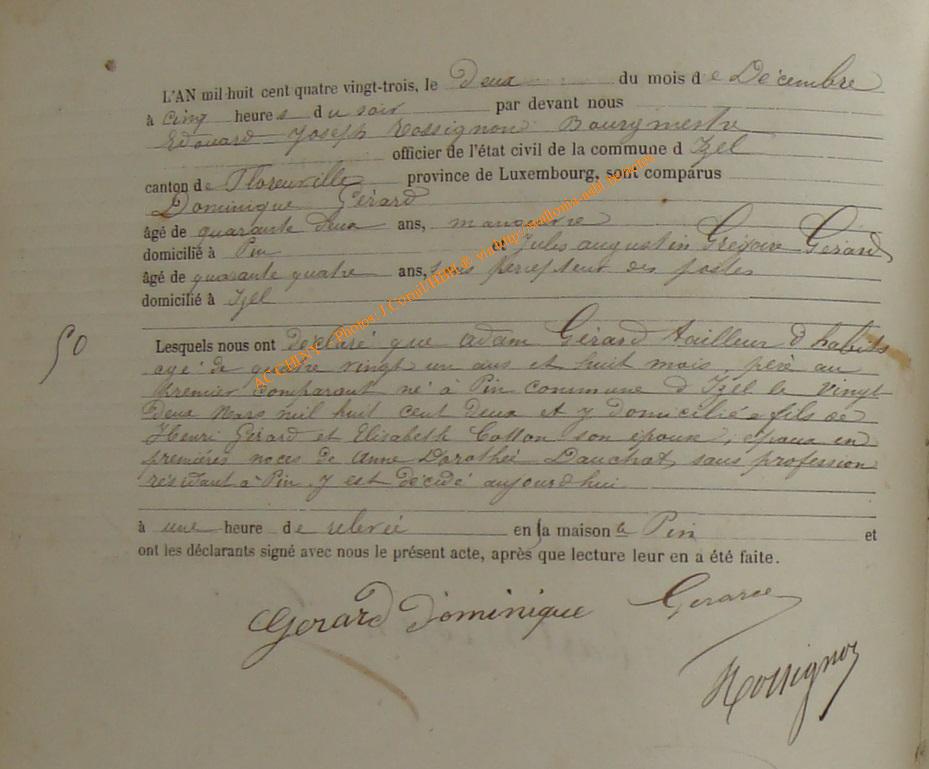 L'AN mil huit cent quatre vingt-trois, le Deux du mois de Décembre
à cinq heures du soir par devant nous
Edouard Joseph Rossignon Bourgmestre
officier de l'état civil de la commune d Izel
canton de Florenville province de Luxembourg, sont comparus
Dominique Gérard
âgé de quarante deux ans,
domicilié à Pin et Jules augustin Grégoire Gerard
âgé de quarante quatre ans, percepteur des postes
domicilié à Izel
50
Lesquels nous ont déclaré que adam Gérard tailleur d habits
agé de quatre vingt un ans et huit mois, père au
premier comparant né à Pin commune d Izel le vingt
Deux mars mil huit cent Deux et y domicilié fils de
Henri Gérard et Elisabeth Cotton son épouse, époux en
premières noces de anne Dorothée Dauchat, sans profession
résidant à Pin. y est décédé aujourdhui
à une heure de relevée en la maison à Pin et
ont les déclarants signé avec nous le présent acte, après que lecture leur en a été faite.
Gerard Dominique Gerard
Rossignon
ACCHINY - Photos: J.Cornil/HIM @ via http://wallonia-asbl.